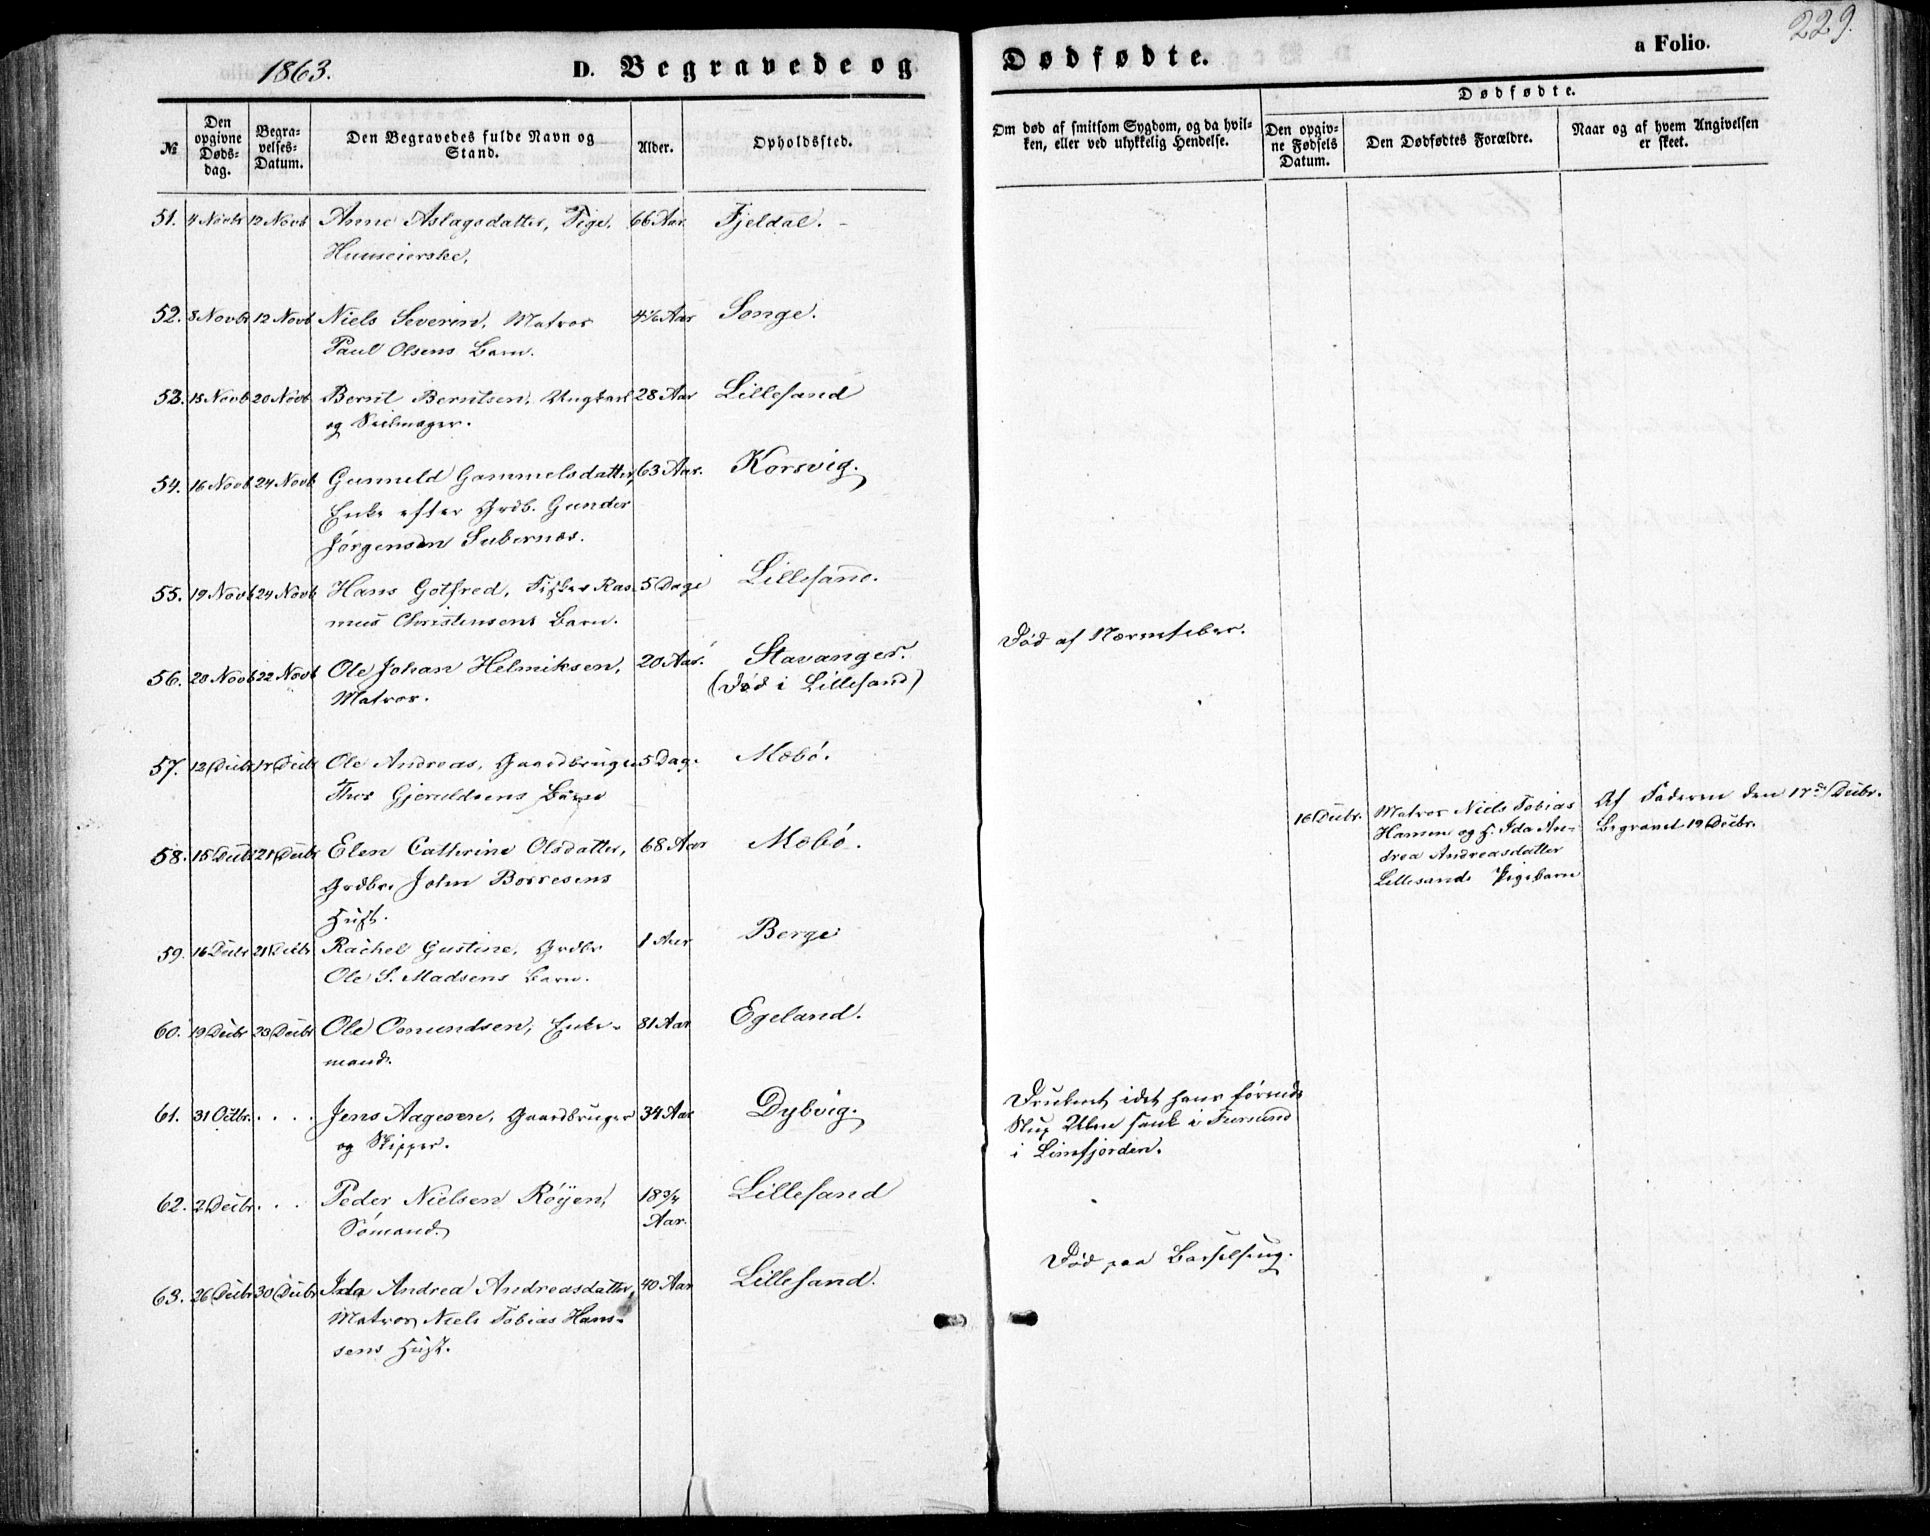 1863.
D. Begravede og
Dødfødte.
a Folio.
229.
№
Den opgivne Dødsdag.
Begravelses-Datum.
Den Begravedes fulde Navn og Stand.
Alder.
Opholdssted.
Om død af smitsom Sygdom, og da hvilken, eller ved ulykkelig Hendelse.
Dødfødte.
Den opgivne Fødsels Datum.
Den Dødfødtes Forældre.
Naar og af hvem Angivelsen er skeet.
51. 4 Novbr 12 Novb Anne Aslagsdatter, Pige, 66 Aar. Fjeldal. -
Huuseierske.
52. 8 Novbr 12 Novb Niels Severin, Matros 4 1/6 Aar Songe.
Paul Olsens Barn.
53. 18 Novb 20 Novb Bernt Berntsen, Ungkarl 28 Aar Lillesand
og Seilmager.
54. 16 Novb 24 Novb Gunneld Gammelsdatter, 63 Aar. Korsvig.
Enke efter Grdb. Gunder
Jørgensen Subernæs.
55. 19 Novb 24 Novb Hans Gotfred, Fisker Ras- 5 Dage Lillesand.
mus Christensens Barn.
56. 20 Novb 22 Novb Ole Johan Helmiksen, 20 Aar. Stavanger. Død af Nervefeber.
Matros. (Død i Lillesand)
57. 12 Decbr 17 Decbr Ole Andreas, Gaardbruger 5 Dag. Mæbø.
Thor Gjeruldsens Barn
16 Decbr. Matros Niels Tobias Af Faderen den 17de Decbr.
Hansen og H. Ida An- Begravet 19 Decbr.
drea Andreasdatter
Lillesands Pigebarn
58. 15 Decb 21 Decbr Elen Cathrine Olsdatter, 68 Aar Mæbø.
Grdbr. John Børresens
Hust.
59. 16 Decbr 21 Decbr Rachel Gustine, Grdbr 1 Aar Berge
Ole S. Madsens Barn.
60. 19 Decbr 23 Decbr Ole Osmundsen, Enke- 81 Aar Egeland.
mand.
61. 31 Octbr. . . . . Jens Aagesen, Gaardbruger 34 Aar Dybvig. Druknet idet hans førende
og Skipper. Slup sank i Fursund
i Limfjorden.
62. 2 Decbr. . . . Peder Nielsen Røyen, 18 3/4 Lillesand
Sømand. Aar.
63. 26 Decbr 30 Decbr Ida Andrea Andreasdatter, 40 Aar Lillesand. Død paa Barselseng.
Matros Niels Tobias Han-
sens Hust.